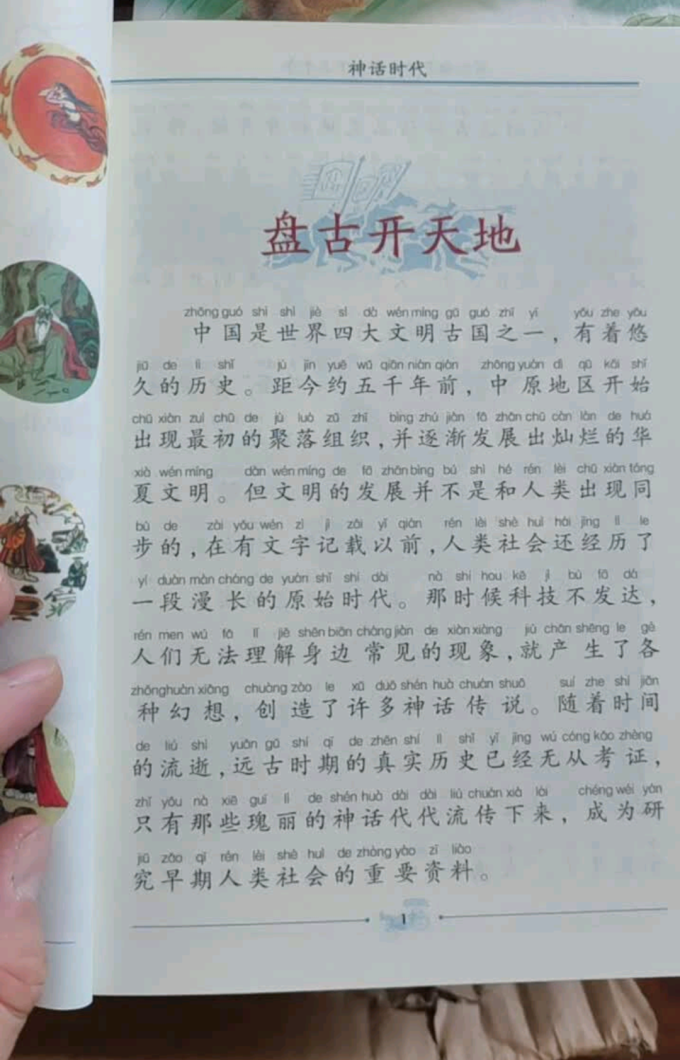 神话时代
盘古开天地
zhōng guó shì shì jiè sì dà wén míng gǔ guó zhī yī yǒu zhe yōu
中国是世界四大文明古国之一，有着悠
jiǔ de lì shǐ jù jīn yuē wǔ qiān nián qián zhōng yuán dì qū kāi shǐ
久的历史。距今约五千年前，中原地区开始
chū xiàn zuì chū de jù luò zǔ zhī bìng zhú jiàn fā zhǎn chū càn làn de huá
出现最初的聚落组织，并逐渐发展出灿烂的华
xià wén míng dàn wén míng de fā zhǎn bìng bú shì hé rén lèi chū xiàn tóng
夏文明。但文明的发展并不是和人类出现同
bù de zài yǒu wén zì jì zǎi yǐ qián rén lèi shè huì hái jīng lì le
步的，在有文字记载以前，人类社会还经历了
yí duàn màn cháng de yuán shǐ shí dài nà shí hou kē jì bù fā dá
一段漫长的原始时代。那时候科技不发达，
rén men wú fǎ lǐ jiě shēn biān cháng jiàn de xiàn xiàng jiù chǎn shēng le gè
人们无法理解身边常见的现象，就产生了各
zhǒng huàn xiǎng chuàng zào le xǔ duō shén huà chuán shuō suí zhe shí jiān
种幻想，创造了许多神话传说。随着时间
de liú shì yuǎn gǔ shí qī de zhēn shí lì shǐ yǐ jīng wú cóng kǎo zhèng
的流逝，远古时期的真实历史已经无从考证，
zhǐ yǒu nà xiē guī lì de shén huà dài dài liú chuán xià lái chéng wéi yán
只有那些瑰丽的神话代代流传下来，成为研
jiū zǎo qī rén lèi shè huì de zhòng yào zī liào
究早期人类社会的重要资料。
1